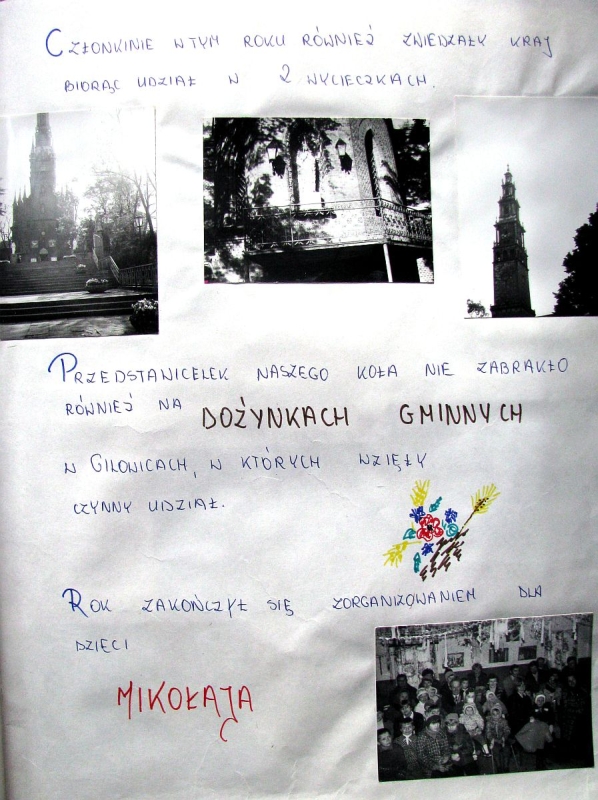 CZŁONKINIE W TYM ROKU RÓWNIEŻ ZWIEDZAŁY KRAJ
BIORĄC UDZIAŁ W 2 WYCIECZKACH.
PRZEDSTAWICELEK NASZEGO KOŁA NIE ZABRAKŁO
RÓWNIEŻ NA DOŻYNKACH GMINNYCH
W GILOWICACH, W KTÓRYCH WZIĘŁY
CZYNNY UDZIAŁ.
ROK ZAKOŃCZYŁ SIĘ ZORGANIZOWANIEM DLA
DZIECI
MIKOŁAJA